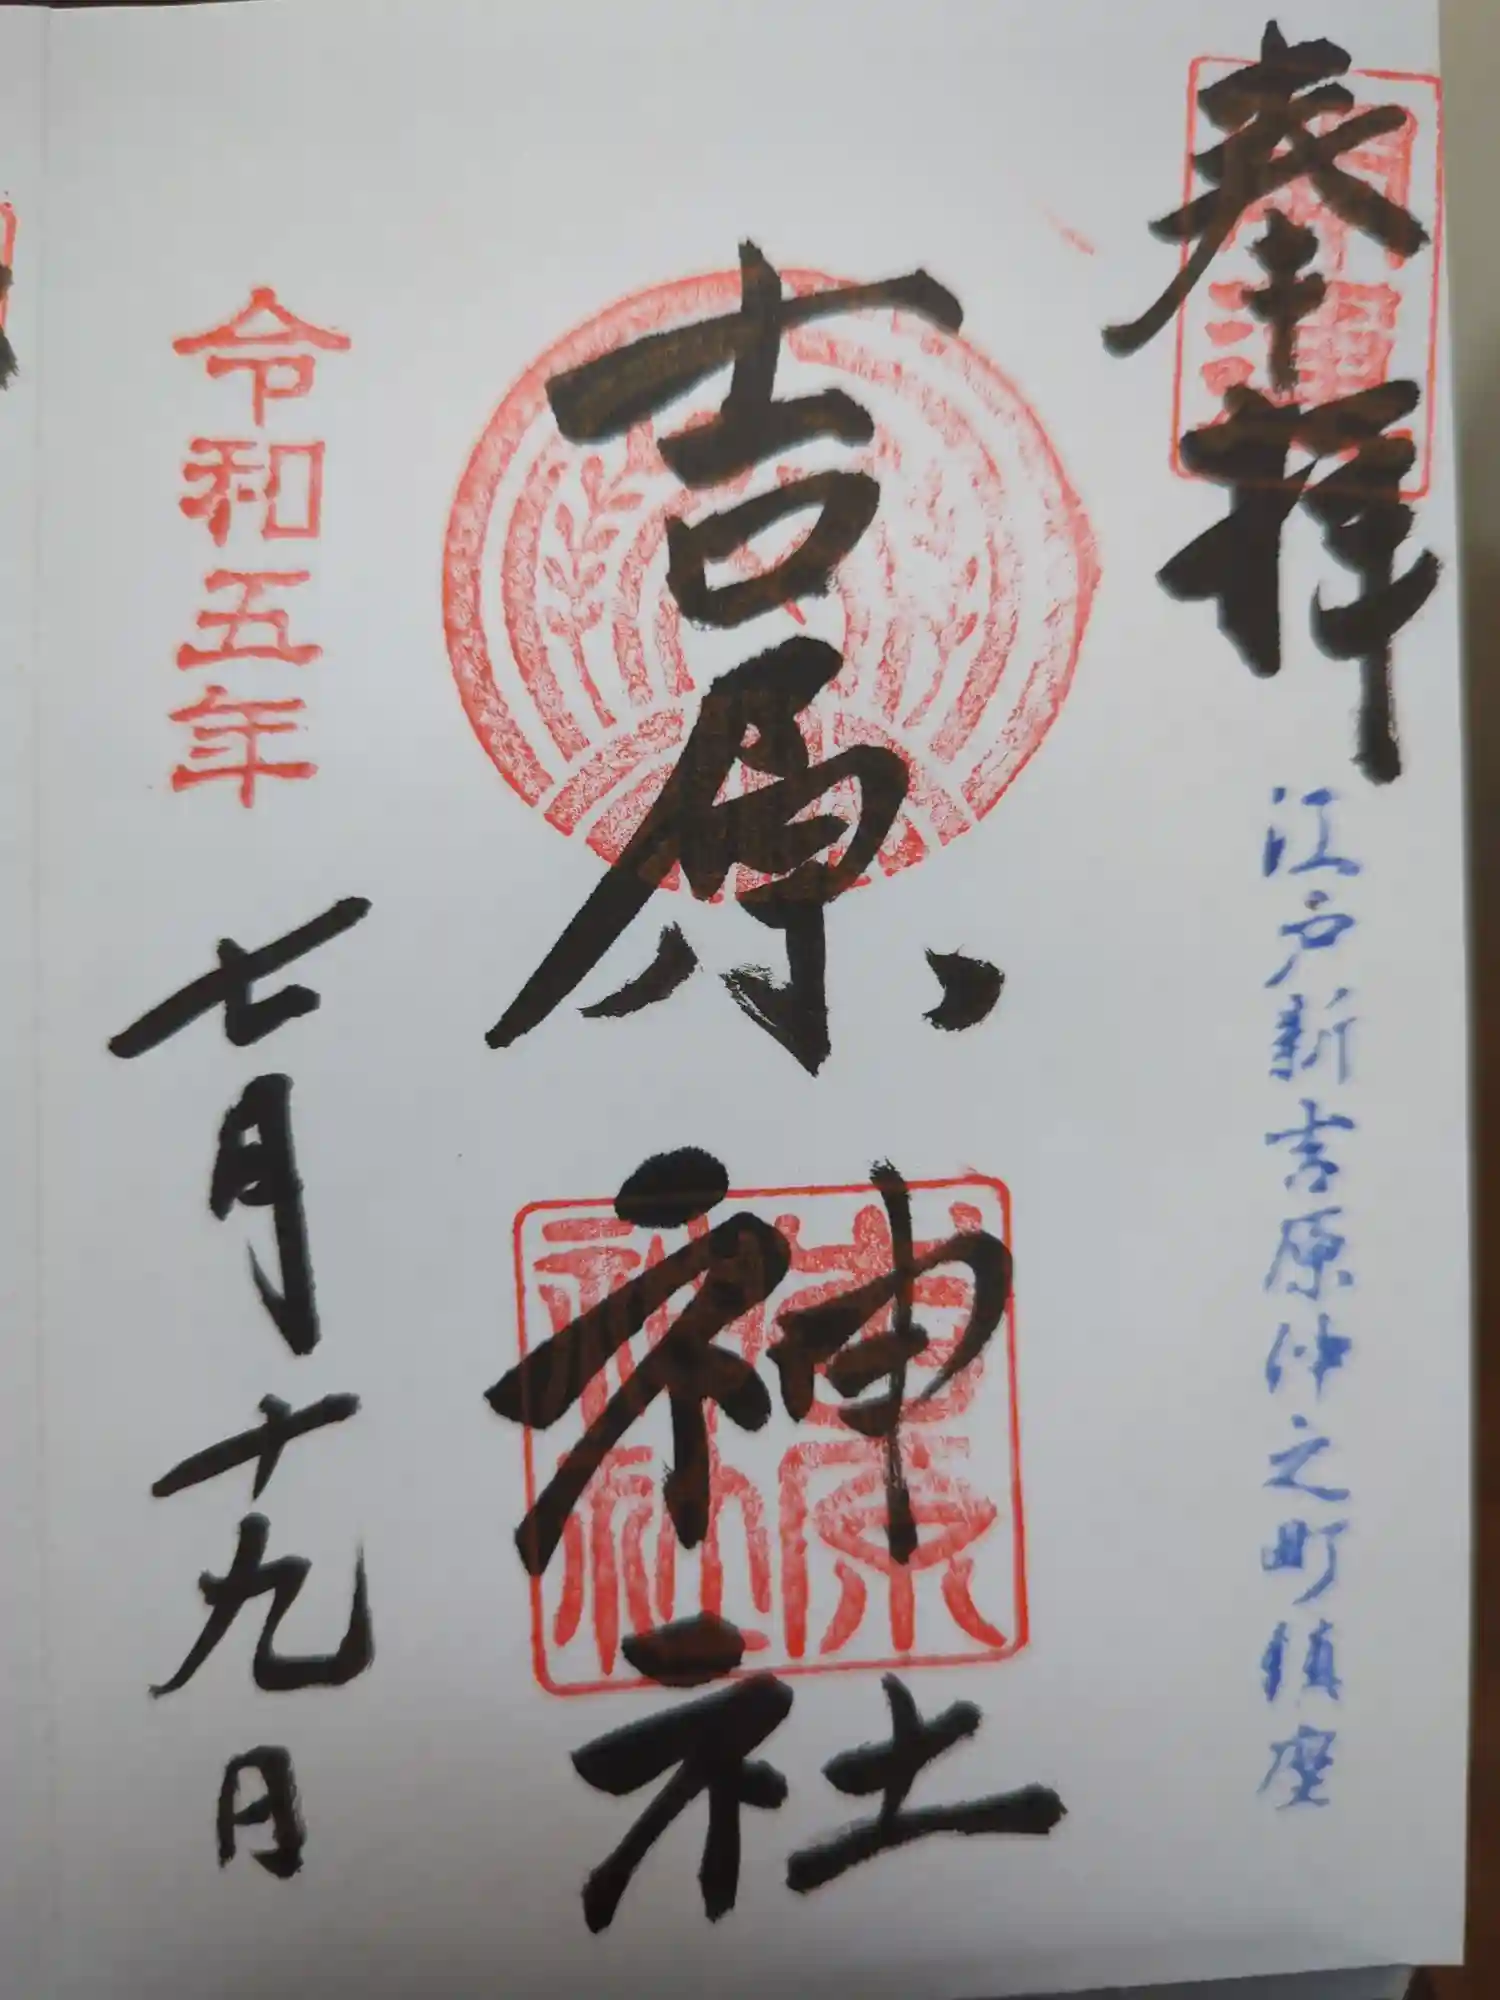 奉拝
開運
江戸新吉原仲之町鎮座
吉原神社
吉原神社
令和五年
七月十九日